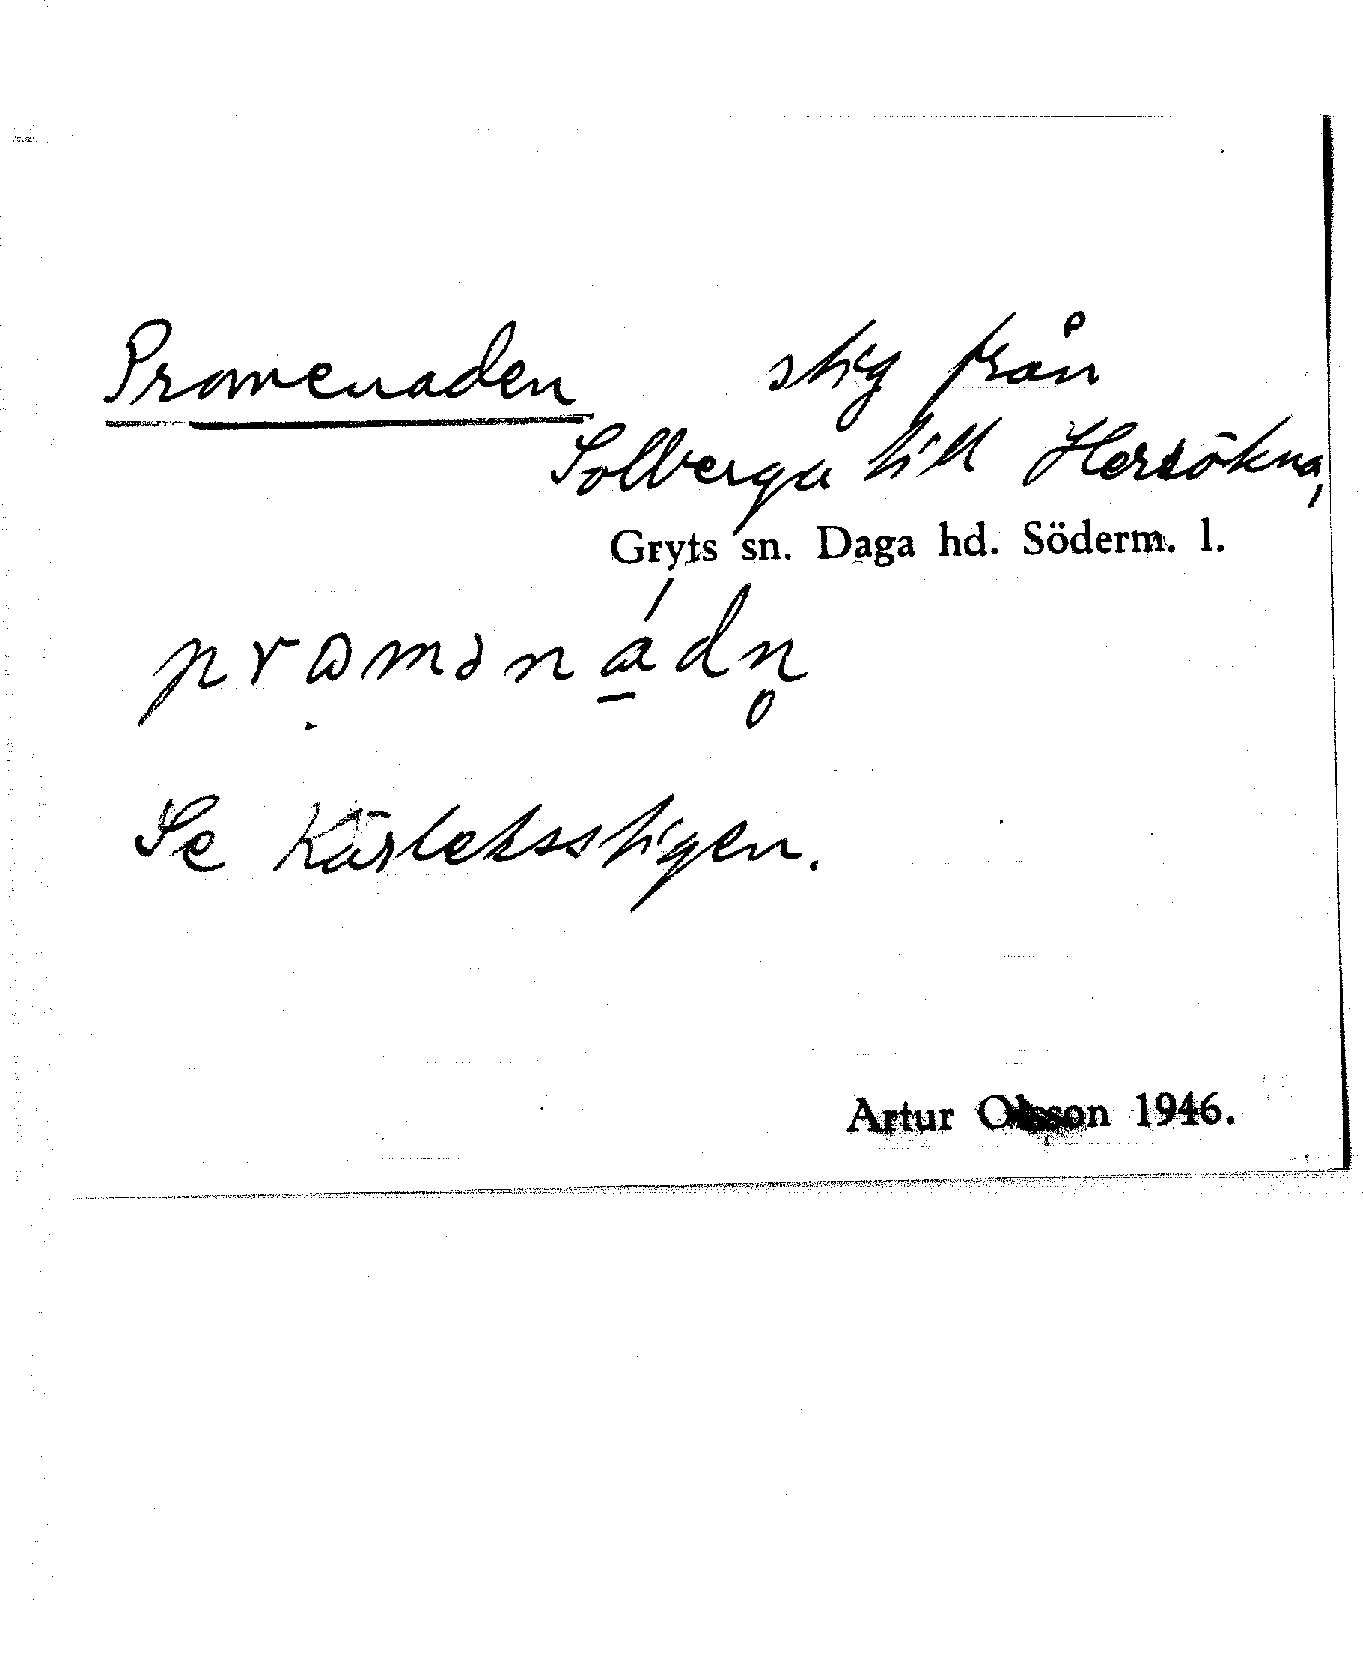 Promenaden stig från
Solberga till Hersökna,
Gryts sn. Daga hd. Söderm. l.
Se Kärleksstigen.
Artur Olsson 1946.